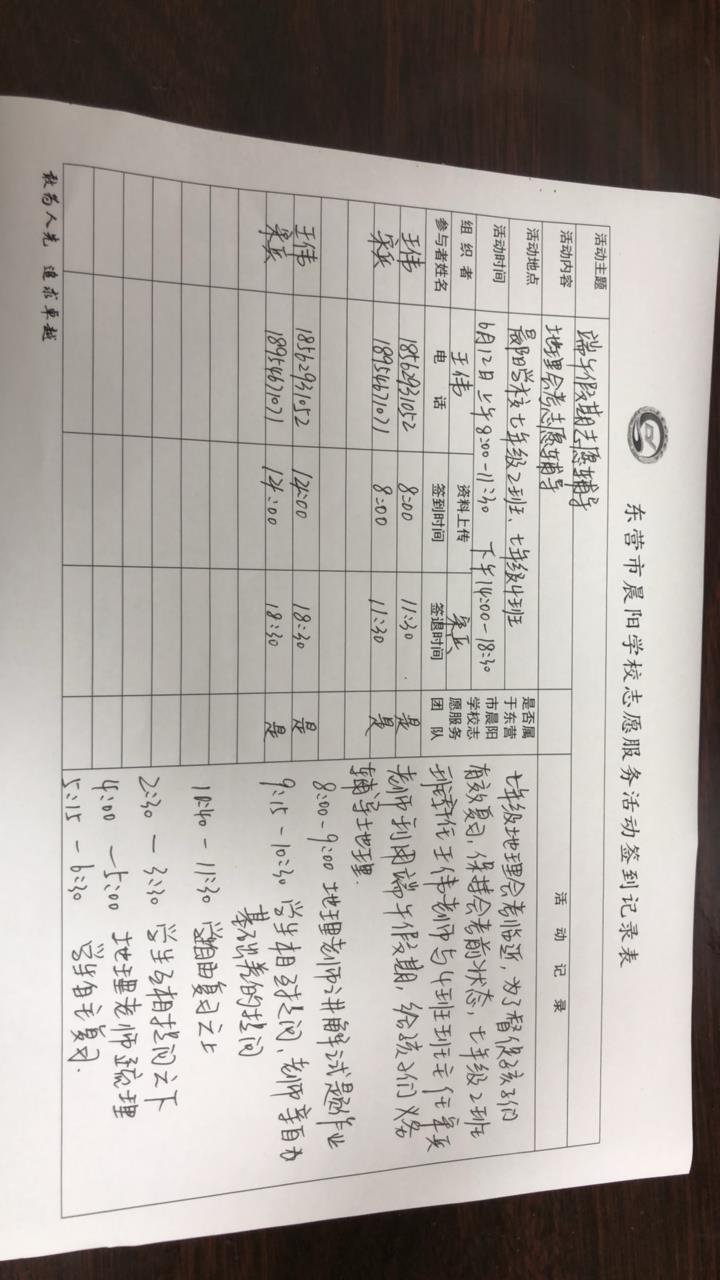 东营市晨阳学校志愿服务活动签到记录表
活动主题 端午假期志愿辅导
活动内容 地理会考志愿辅导
活动地点 晨阳学校七年级2班、七年级4班
活动时间 6月12日 上午8:00-11:30 下午14:00-18:30
组织者 王伟 资料上传 宋兵
参与者姓名 电话 签到时间 签退时间 是否属于东营市晨阳学校志愿服务团队
王伟 18562931052 8:00 11:30 是
宋兵 18954671071 8:00 11:30 是
王伟 18562931052 14:00 18:30 是
宋兵 18954671071 14:00 18:30 是
活动记录
七年级地理会考临近,为了督促孩子们
有效复习,保持会考前状态,七年级2班
班主任王伟老师与4班班主任宋兵
老师利用端午假期,给孩子们义务
辅导地理.
8:00-9:00 地理老师讲解试题作业
9:15-10:30 学生相互提问,老师亲自为
基础差的提问
10:40-11:30 自由复习
2:30-3:30 学生互相提问
4:00-5:00 地理老师梳理
5:15-6:30 学生自主复习.
敢为人先 追求卓越